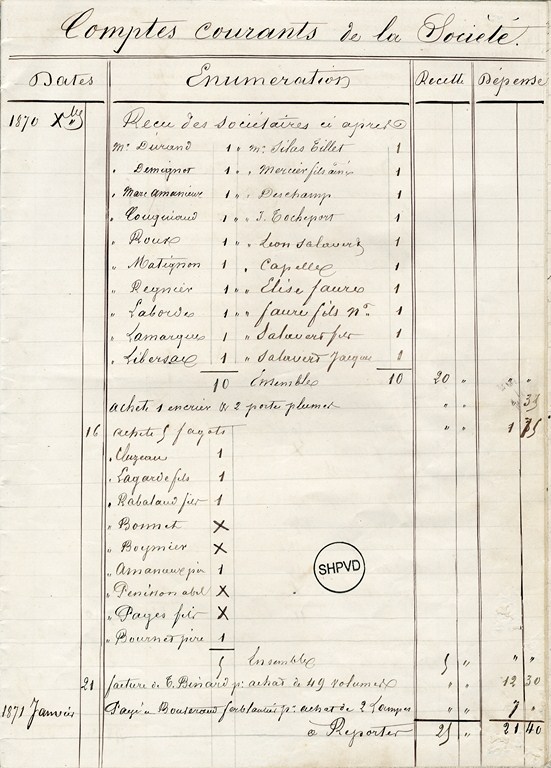 Comptes courants de la Société.
Dates Enumeration Recette Dépense
1870 Xbre Recu des sociétaires ci après
Mr Durand 1 " Mr Silas Eillet 1
" Demignot 1 " " Mercier fils ainé 1
" Marc Amanieux 1 " " Deschamp 1
" Couguiraud 1 " " J. Rocheport 1
" Roux 1 " " Leon Salavert 1
" Matignon 1 " Capelle 1
" Regnier 1 " " Elise Faure 1
" Laborde 1 " " Faure fils 1
" Lamarque 1 " " Salavert fils 1
" Libersac 1 " Salavert Jacques 1
10 Ensemble 10 20 " " "
acheté 1 encrier & 2 porte plumes " " " 35
16 acheté 5 fagots " " 1 75
" Cluzeau 1
" Lagarde fils 1
" Rabaland fils 1
" Bonnet X
" Boymier X
" Amanieux père 1
" Penisson abel X
" Pages fils X
" Bournet père 1
5 Ensemble 5 " " "
21 facture de E. Binard pr achat de 49 volumes " " 12 30
1871 Janvier Payé a ferblantier pr achat de 2 Lampes " " 7 "
a Reporter 25 " 21 40
SHPVD